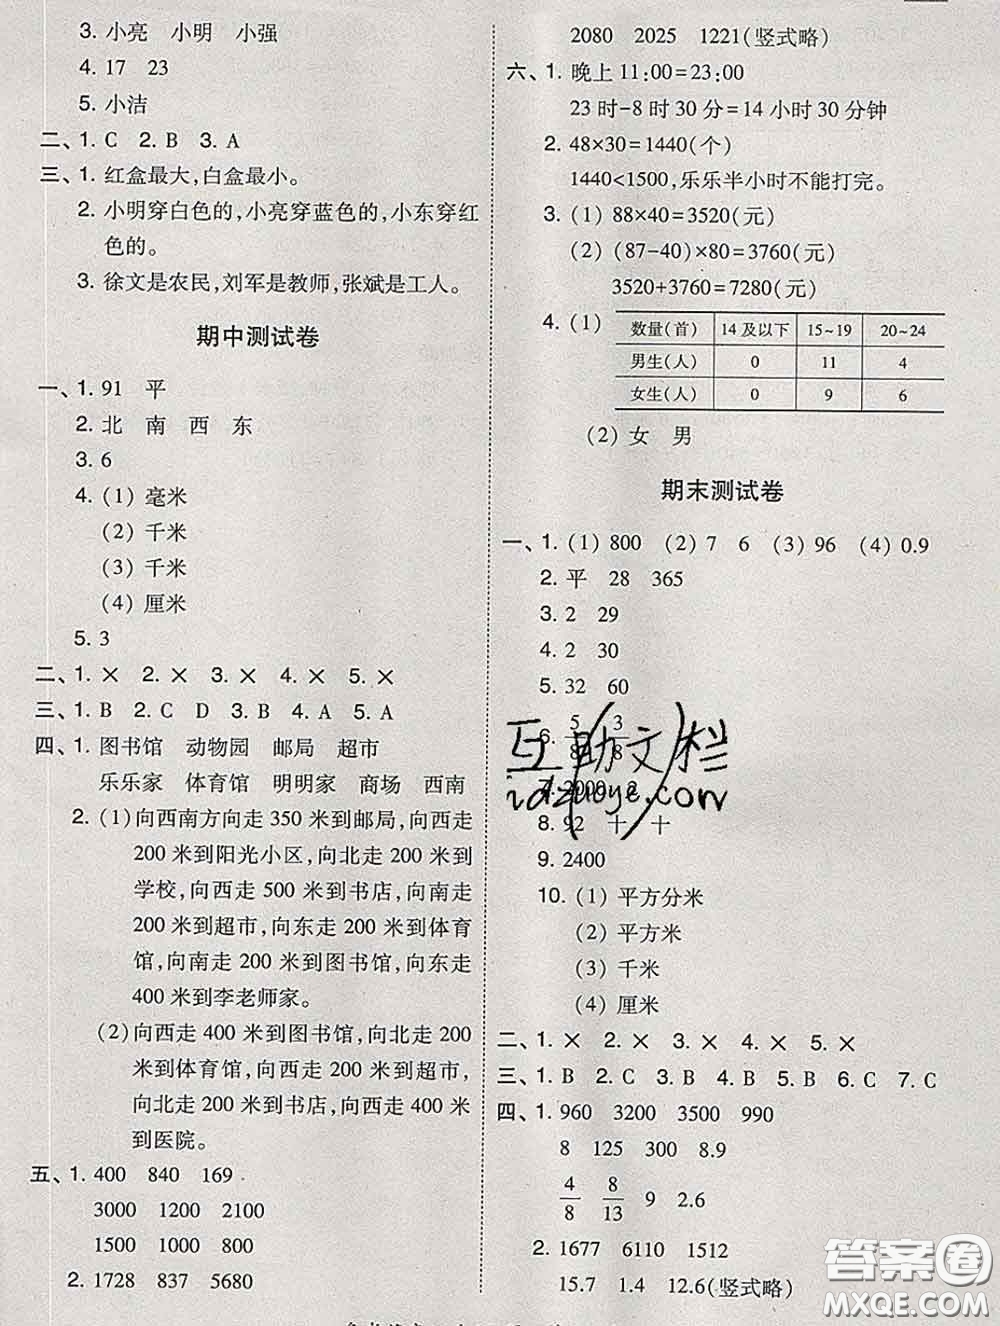 3. 小亮 小明 小强
4. 17 23
5. 小洁
二、1. C 2. B 3. A
三、1. 红盒最大,白盒最小。
2. 小明穿白色的,小亮穿蓝色的,小东穿红
色的。
3. 徐文是农民,刘军是教师,张斌是工人。
期中测试卷
一、1. 91 平
2. 北 南 西 东
3. 6
4. (1) 毫米
(2) 千米
(3) 千米
(4) 厘米
5. 3
二、1. × 2. × 3. × 4. × 5. ×
三、1. B 2. C D 3. B 4. A 5. A
四、1. 图书馆 动物园 邮局 超市
乐乐家 体育馆 明明家 商场 西南
2. (1) 向西南方向走 350 米到邮局,向西走
200 米到阳光小区,向北走 200 米到
学校,向西走 500 米到书店,向南走
200 米到超市,向东走 200 米到体育
馆,向南走 200 米到图书馆,向东走
400 米到李老师家。
(2) 向西走 400 米到图书馆,向北走 200
米到体育馆,向西走 200 米到超市,
向北走 200 米到书店,向西走 400 米
到医院。
五、1. 400 840 169
3000 1200 2100
1500 1000 800
2. 1728 837 5680
2080 2025 1221(竖式略)
六、1. 晚上 11:00=23:00
23 时-8 时 30 分=14 小时 30 分钟
2. 48×30=1440(个)
1440<1500,乐乐半小时不能打完。
3. (1) 88×40=3520(元)
(2) (87-40)×80=3760(元)
3520+3760=7280(元)
4. (1) 数量(首) 14 及以下 15~19 20~24
男生(人) 0 11 4
女生(人) 0 9 6
(2) 女 男
期末测试卷
一、1. (1) 800 (2) 7 6 (3) 96 (4) 0.9
2. 平 28 365
3. 2 29
4. 2 30
5. 32 60
6. 5/8 3/8
7. 2000 2
8. 92 十 十
9. 2400
10. (1) 平方分米
(2) 平方米
(3) 千米
(4) 厘米
二、1. × 2. × 3. × 4. × 5. ×
三、1. B 2. C 3. B 4. B 5. B 6. C 7. C
四、1. 960 3200 3500 990
8 125 300 8.9
4/8 8/13 9 2.6
2. 1677 6110 1512
15.7 1.4 12.6(竖式略)
互助文栏
答案圈
MXQE.COM